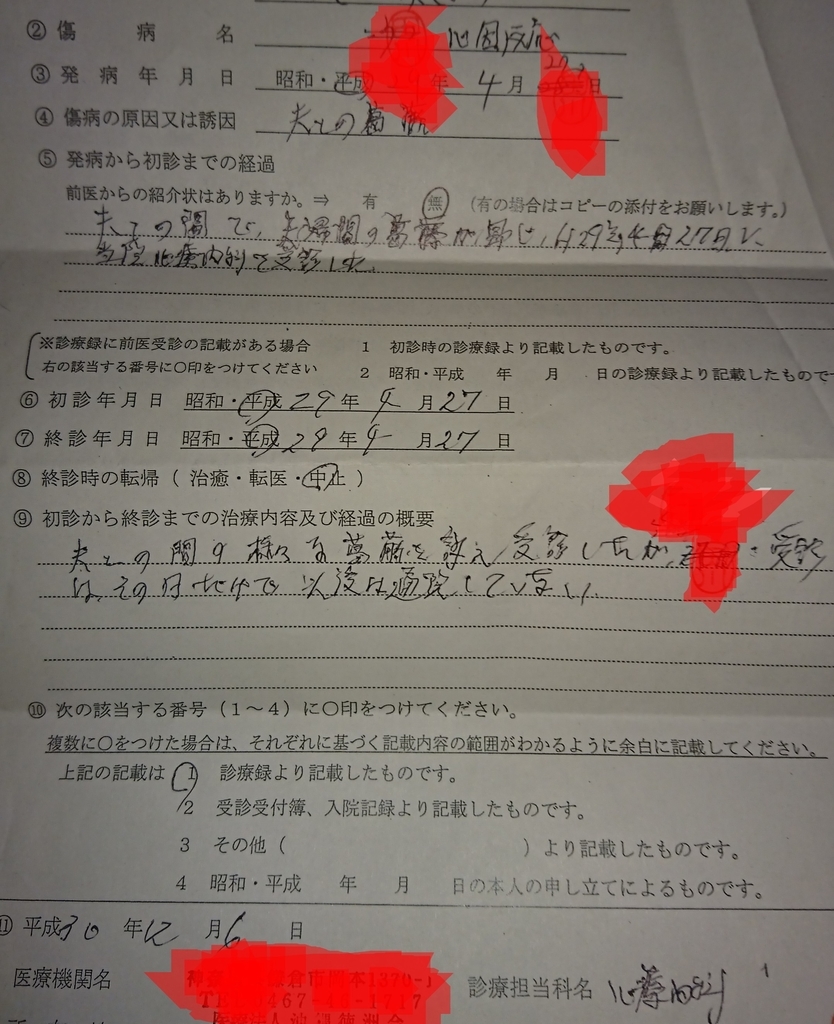 ② 傷病名 心因反応
③ 発病年月日 昭和・平成 29年 4月 日
④ 傷病の原因又は誘因 夫との葛藤
⑤ 発病から初診までの経過
前医からの紹介状はありますか。⇒ 有 無 (有の場合はコピーの添付をお願いします。)
夫との間で、夫婦間の葛藤が生じ、H29年4月27日に
当院心療内科を受診した。
※診療録に前医受診の記載がある場合 1 初診時の診療録より記載したものです。
右の該当する番号に○印をつけてください 2 昭和・平成 年 月 日の診療録より記載したもので
⑥ 初診年月日 昭和・平成 29年 4月27日
⑦ 終診年月日 昭和・平成 29年 4月27日
⑧ 終診時の転帰(治癒・転医・中止)
⑨ 初診から終診までの治療内容及び経過の概要
夫との間の様々な葛藤を訴え受診したが、 受診
は、その日だけで以後は通院していない。
⑩ 次の該当する番号(1~4)に○印をつけてください。
複数に○をつけた場合は、それぞれに基づく記載内容の範囲がわかるように余白に記載してください。
上記の記載は 1 診療録より記載したものです。
2 受診受付簿、入院記録より記載したものです。
3 その他( )より記載したものです。
4 昭和・平成 年 月 日の本人の申し立てによるものです。
⑪ 平成30年12月6日
医療機関名
診療担当科名 心療内科